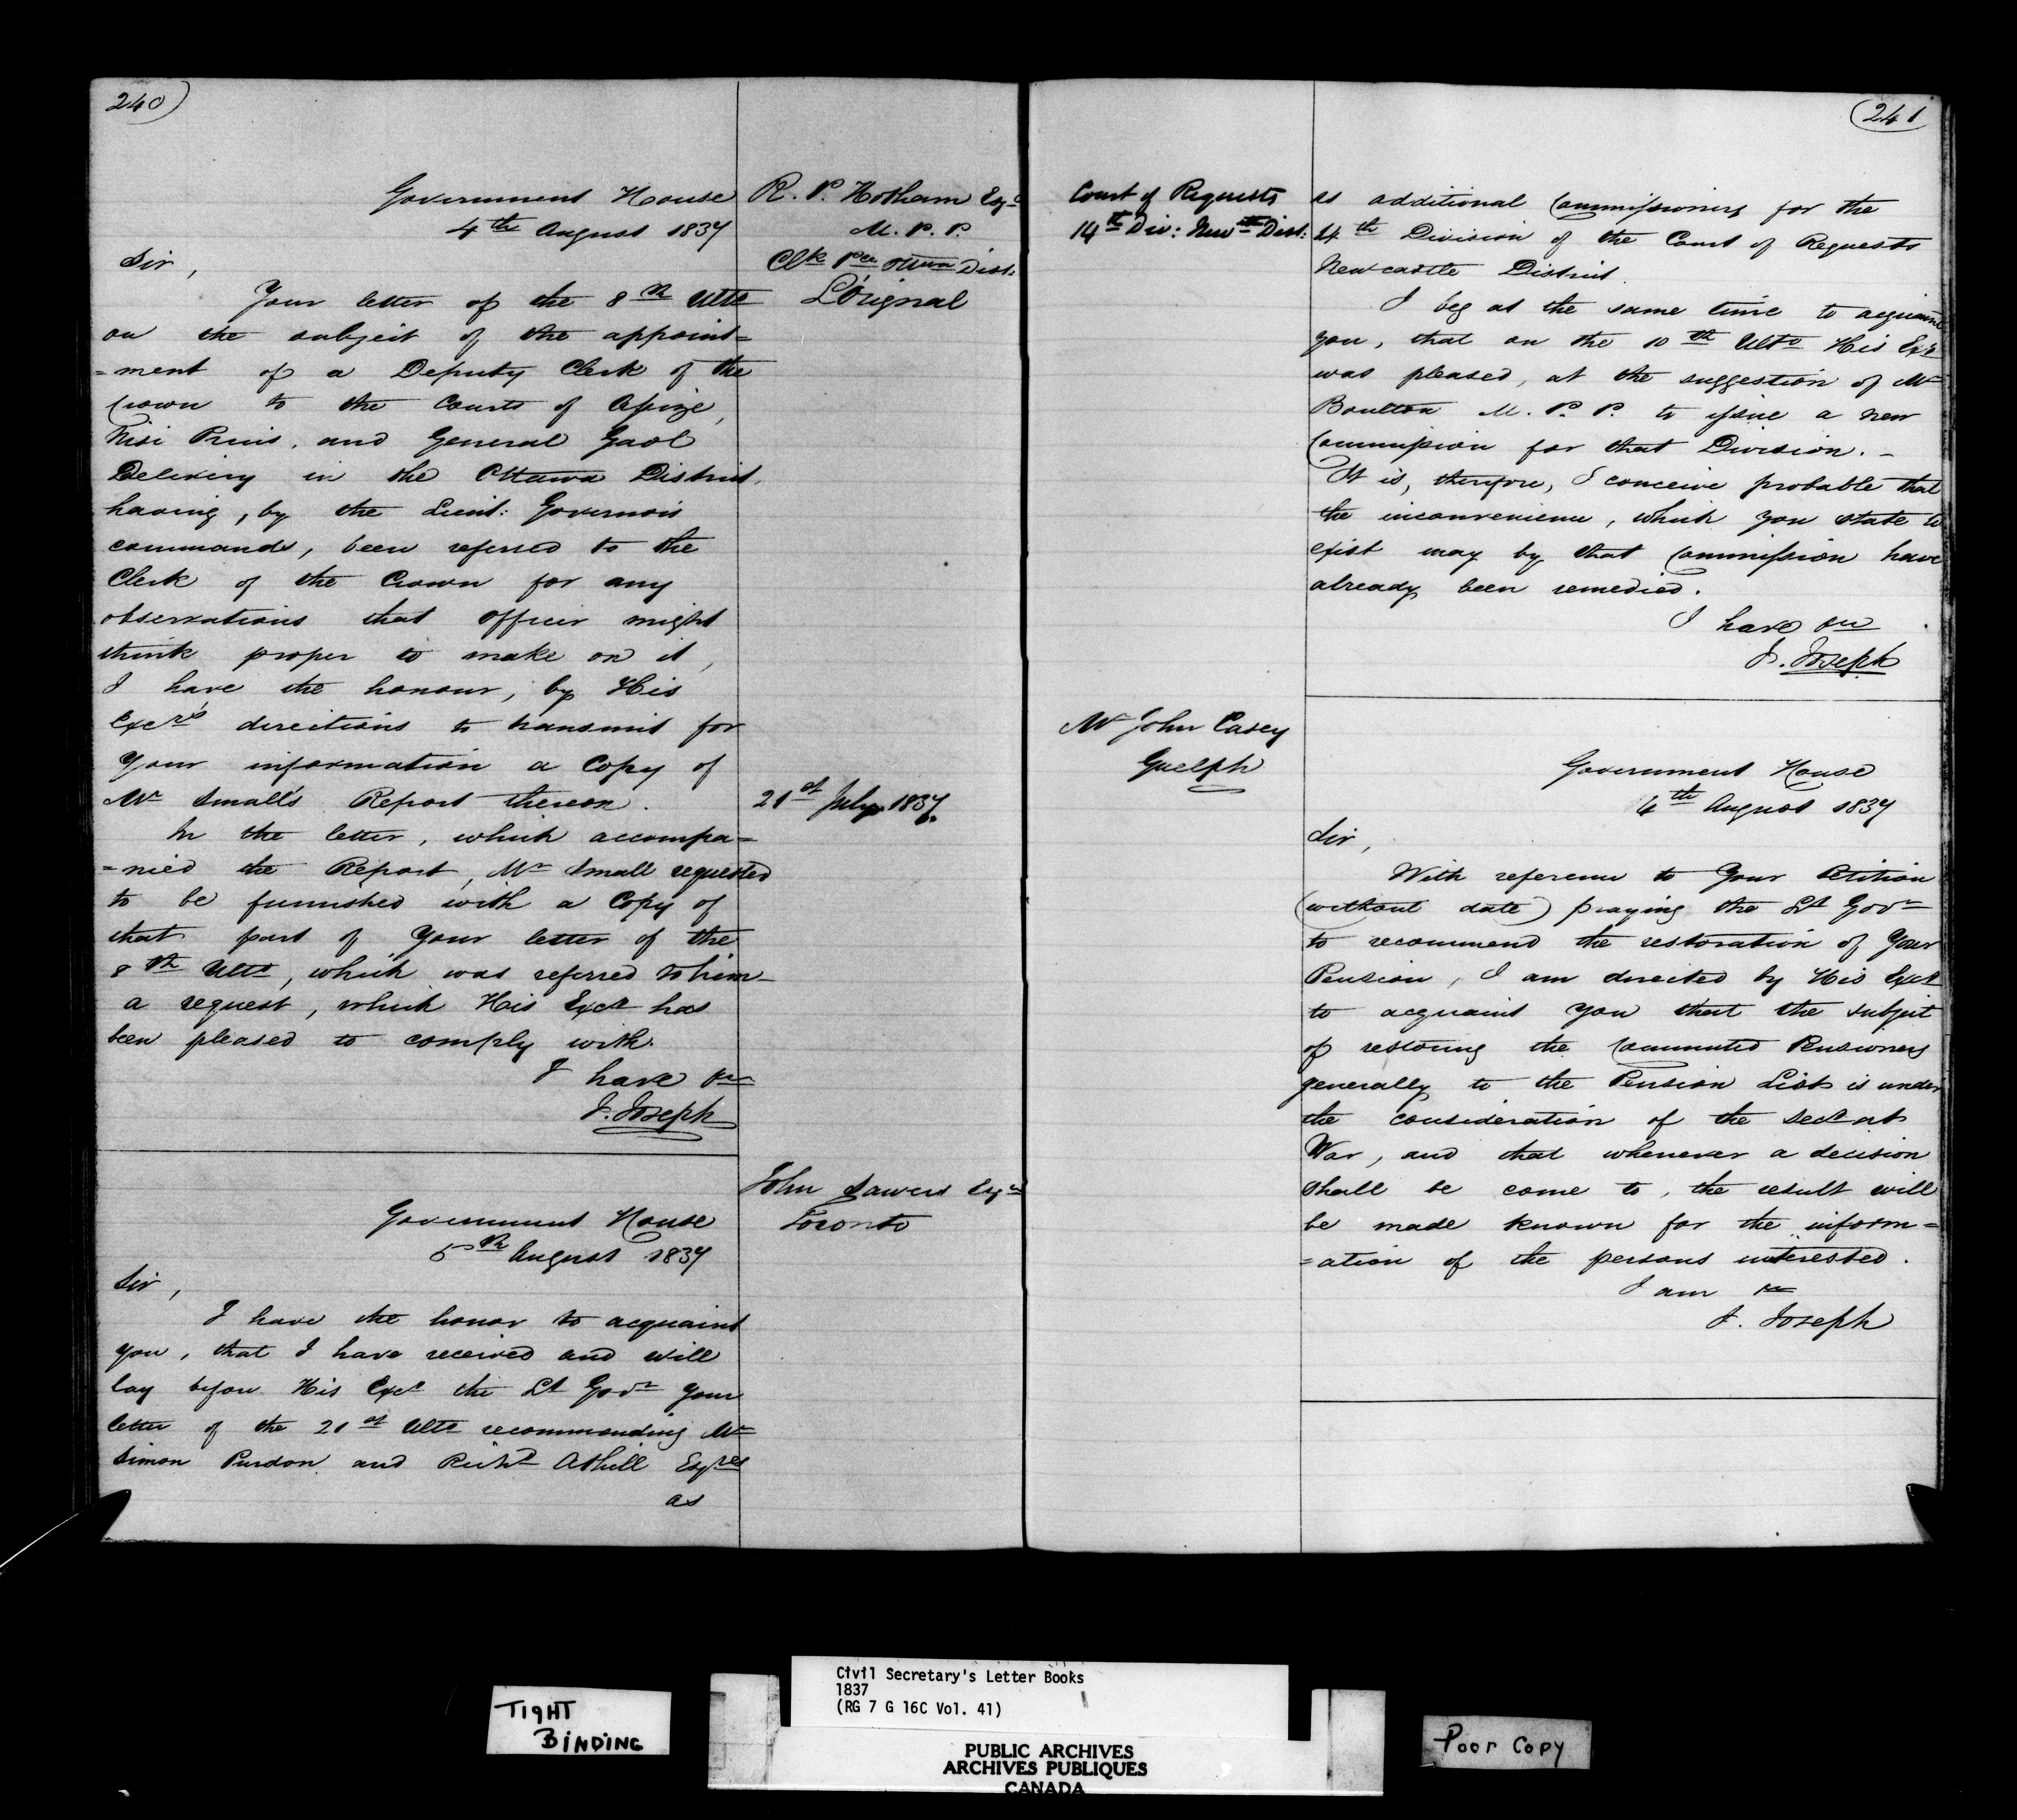 240)
Government House
4th August 1837
R. P. Hotham Esqr
M. P. P.
Clk Pce Ottwa Dist:
L'Orignal
Sir,
Your letter of the 8th Ulto
on the subject of the appoint=
=ment of a Deputy Clerk of the
Crown to the Courts of Assize,
Nisi Prius, and General Gaol
Delivery in the Ottawa District,
having, by the Lieut: Governors
commands, been referred to the
Clerk of the Crown for any
observations that Officer might
think proper to make on it,
I have the honour, by His
Excys directions to transmit for
your information a Copy of
Mr Small's Report thereon.
21st July 1837.
In the letter, which accompa=
=nied the Report, Mr Small requested
to be furnished with a Copy of
that part of your letter of the
8th Ulto, which was referred to him_
a request, which His Excy has
been pleased to comply with.
I have &c
J. Joseph
John Sawers Esqr
Toronto
Government House
5th August 1837
Sir,
I have the honor to acquaint
you, that I have received and will
lay before His Excy the Lt Govr your
letter of the 21st Ulto recommending Mr
Simon Purdon and Richd Athill Esqres
as
(241
Court of Requests
14th Div: Newtle Dist:
as additional Commissioners for the
14th Division of the Court of Requests
Newcastle District.
I beg at the same time to acquaint
you, that on the 10th Ulto His Excy
was pleased, at the suggestion of Mr
Boulton M. P. P. to issue a new
Commission for that Division._
It is, therefore, I conceive probable that
the inconvenience, which you state to
exist may by that Commission have
already been remedied.
I have &c
J. Joseph
Mr John Casey
Guelph
Government House
4th August 1837
Sir,
With reference to Your Petition
(without date) praying the Lt Govr
to recommend the restoration of Your
Pension, I am directed by His Excy
to acquaint you that the subject
of restoring the Commuted Pensioners
generally to the Pension List is under
the consideration of the Secy at
War, and that whenever a decision
shall be come to, the result will
be made known for the inform=
=ation of the persons interested.
I am &c
J. Joseph
TIGHT
BINDING
Civil Secretary's Letter Books
1837
(RG 7 G 16C Vol. 41)
PUBLIC ARCHIVES
ARCHIVES PUBLIQUES
CANADA
Poor Copy